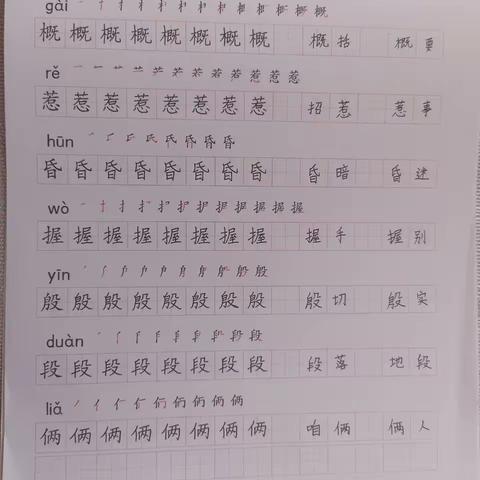 gài
概 概 概 概 概 概 概 概 概 括 概 要
rě
惹 惹 惹 惹 惹 惹 惹 惹 招 惹 惹 事
hūn
昏 昏 昏 昏 昏 昏 昏 昏 昏 暗 昏 迷
wò
握 握 握 握 握 握 握 握 握 手 握 别
yīn
殷 殷 殷 殷 殷 殷 殷 殷 殷 切 殷 实
duàn
段 段 段 段 段 段 段 段 段 落 地 段
liǎ
俩 俩 俩 俩 俩 俩 俩 俩 咱 俩 俩 人